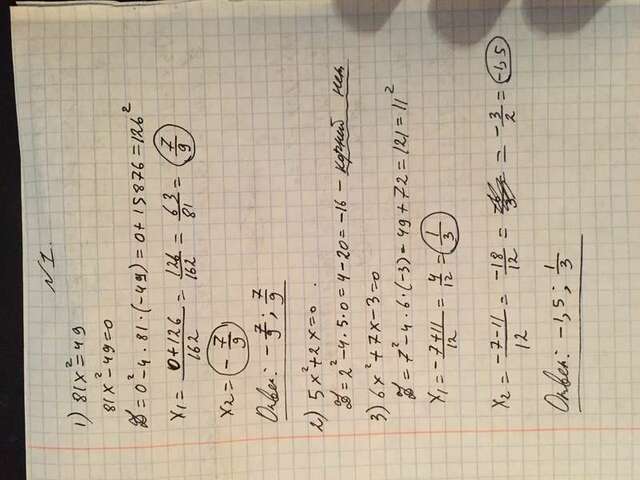 №1.
1) 81x²=49
81x²-49=0
D=0²-4·81·(-49)=0+15876=126²
x₁= 0+126/162 = 126/162 = 63/81 = 7/9
x₂= -7/9
Ответ: -7/9; 7/9
2) 5x²+2x=0.
D=2²-4·5·0=4-20=-16 - корней нет
3) 6x²+7x-3=0
D=7²-4·6·(-3)=49+72=121=11²
x₁= -7+11/12 = 4/12 = 1/3
x₂= -7-11/12 = -18/12 = = -3/2 = -1,5
Ответ: -1,5; 1/3